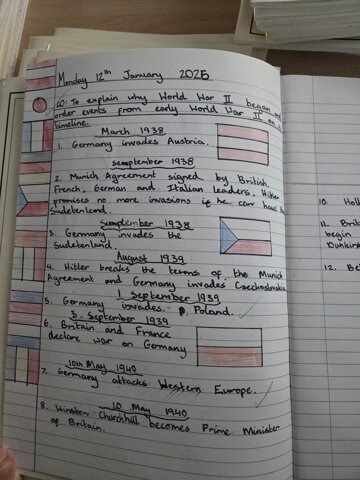 Monday 12th January 2026
LO: To explain why World War II began and
order events from early World War II on a
timeline.
March 1938
1. Germany invades Austria.
September 1938
2. Munich Agreement signed by British,
French, German and Italian leaders. Hitler
promises no more invasions if he can have the
Sudetenland.
September 1938
3. Germany invades the
Sudetenland.
August 1939
4. Hitler breaks the terms of the Munich
Agreement and Germany invades Czechoslovakia
1 September 1939
5. Germany invades Poland.
3. September 1939
6. Britain and France
declare war on Germany
10th May 1940
7. Germany attacks Western Europe.
10 May 1940
8. Winston Churchill becomes Prime Minister
of Britain.
10.
11. Brit
begin
Dunkir
12. Be